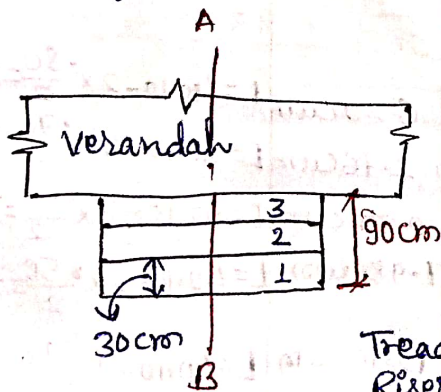 A
Verandah
3
2
90cm
1
30cm
Tread
Riser
B